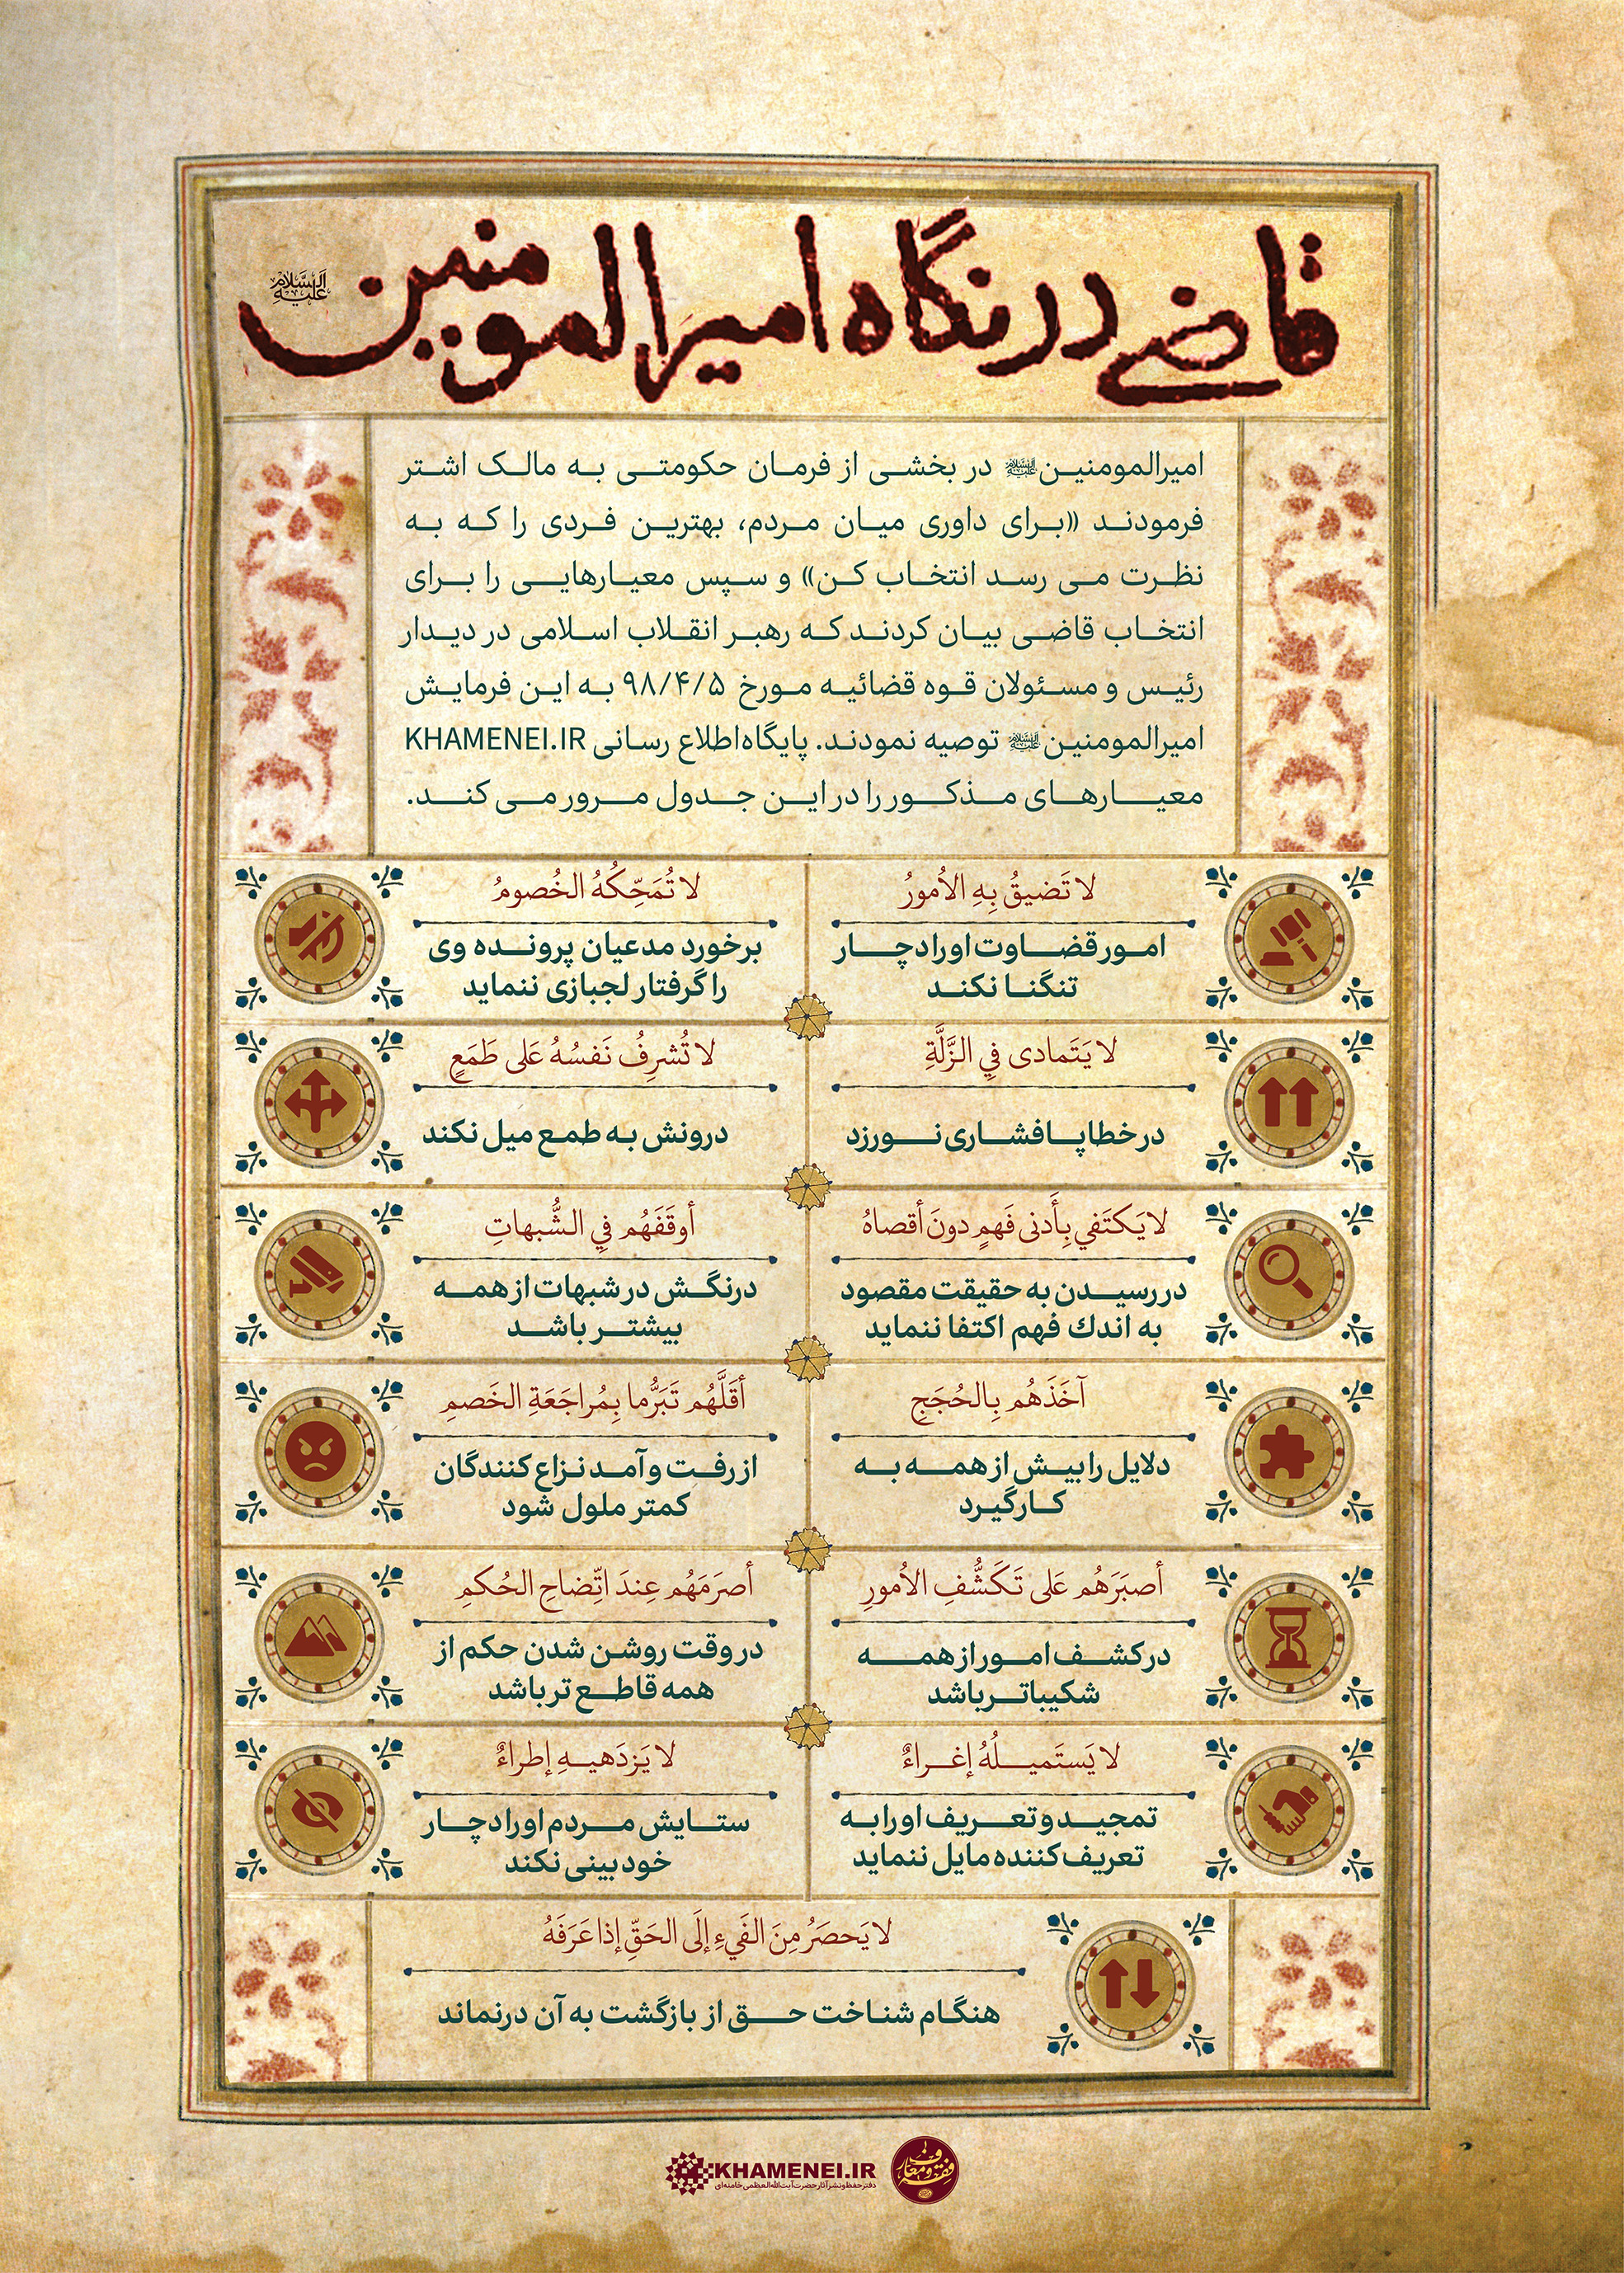 قاضی در نگاه امیرالمومنین علیه‌السلام
امیرالمومنین علیه‌السلام در بخشی از فرمان حکومتی به مالک اشتر
فرمودند «برای داوری میان مردم، بهترین فردی را که به
نظرت می رسد انتخاب کن» و سپس معیارهایی را برای
انتخاب قاضی بیان کردند که رهبر انقلاب اسلامی در دیدار
رئیس و مسئولان قوه قضائیه مورخ ۹۸/۴/۵ به این فرمایش
امیرالمومنین علیه‌السلام توصیه نمودند. پایگاه اطلاع رسانی KHAMENEI.IR
معیارهای مذکور را در این جدول مرور می کند.
لا تَضيقُ بِهِ الاُمورُ
امور قضاوت او را دچار
تنگنا نکند
لا تُمَحِّكُهُ الخُصومُ
برخورد مدعیان پرونده وی
را گرفتار لجبازی ننماید
لا يَتَمادى فِي الزَّلَّةِ
در خطا پافشاری نورزد
لا تُشرِفُ نَفسُهُ عَلى طَمَعٍ
درونش به طمع میل نکند
لا يَكتَفي بِأَدنى فَهمٍ دونَ أقصاهُ
در رسیدن به حقیقت مقصود
به اندك فهم اکتفا ننماید
أوقَفَهُم فِي الشُّبهاتِ
درنگش در شبهات از همه
بیشتر باشد
آخَذَهُم بِالحُجَجِ
دلایل را بیش از همه به
کار گیرد
أقَلَّهُم تَبَرُّما بِمُراجَعَةِ الخَصمِ
از رفت و آمد نزاع کنندگان
کمتر ملول شود
أصبَرَهُم عَلى تَكَشُّفِ الاُمورِ
در کشف امور از همه
شکیباتر باشد
أصرَمَهُم عِندَ اتِّضاحِ الحُكمِ
در وقت روشن شدن حکم از
همه قاطع تر باشد
لا يَستَميلُهُ إغراءٌ
تمجید و تعریف او را به
تعریف کننده مایل ننماید
لا يَزدَهيهِ إطراءٌ
ستایش مردم او را دچار
خودبینی نکند
لا يَحصَرُ مِنَ الفَيءِ إلَى الحَقِّ إذا عَرَفَهُ
هنگام شناخت حق از بازگشت به آن درنماند
KHAMENEI.IR
دفتر حفظ و نشر آثار حضرت آیت‌الله العظمی خامنه‌ای
فقه و معارف